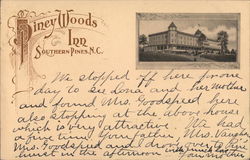 Piney Woods
Inn
Southern Pines, N.C.
We stopped off here for one
day to see Lord and her mother
and found Mrs. Goodspeed here
also stopping at the above house
which is very attractive. We had
a fine time. Your father, Mrs. Vaughn
Mrs. Goodspeed and I drove over to Pine
hurst in the afternoon